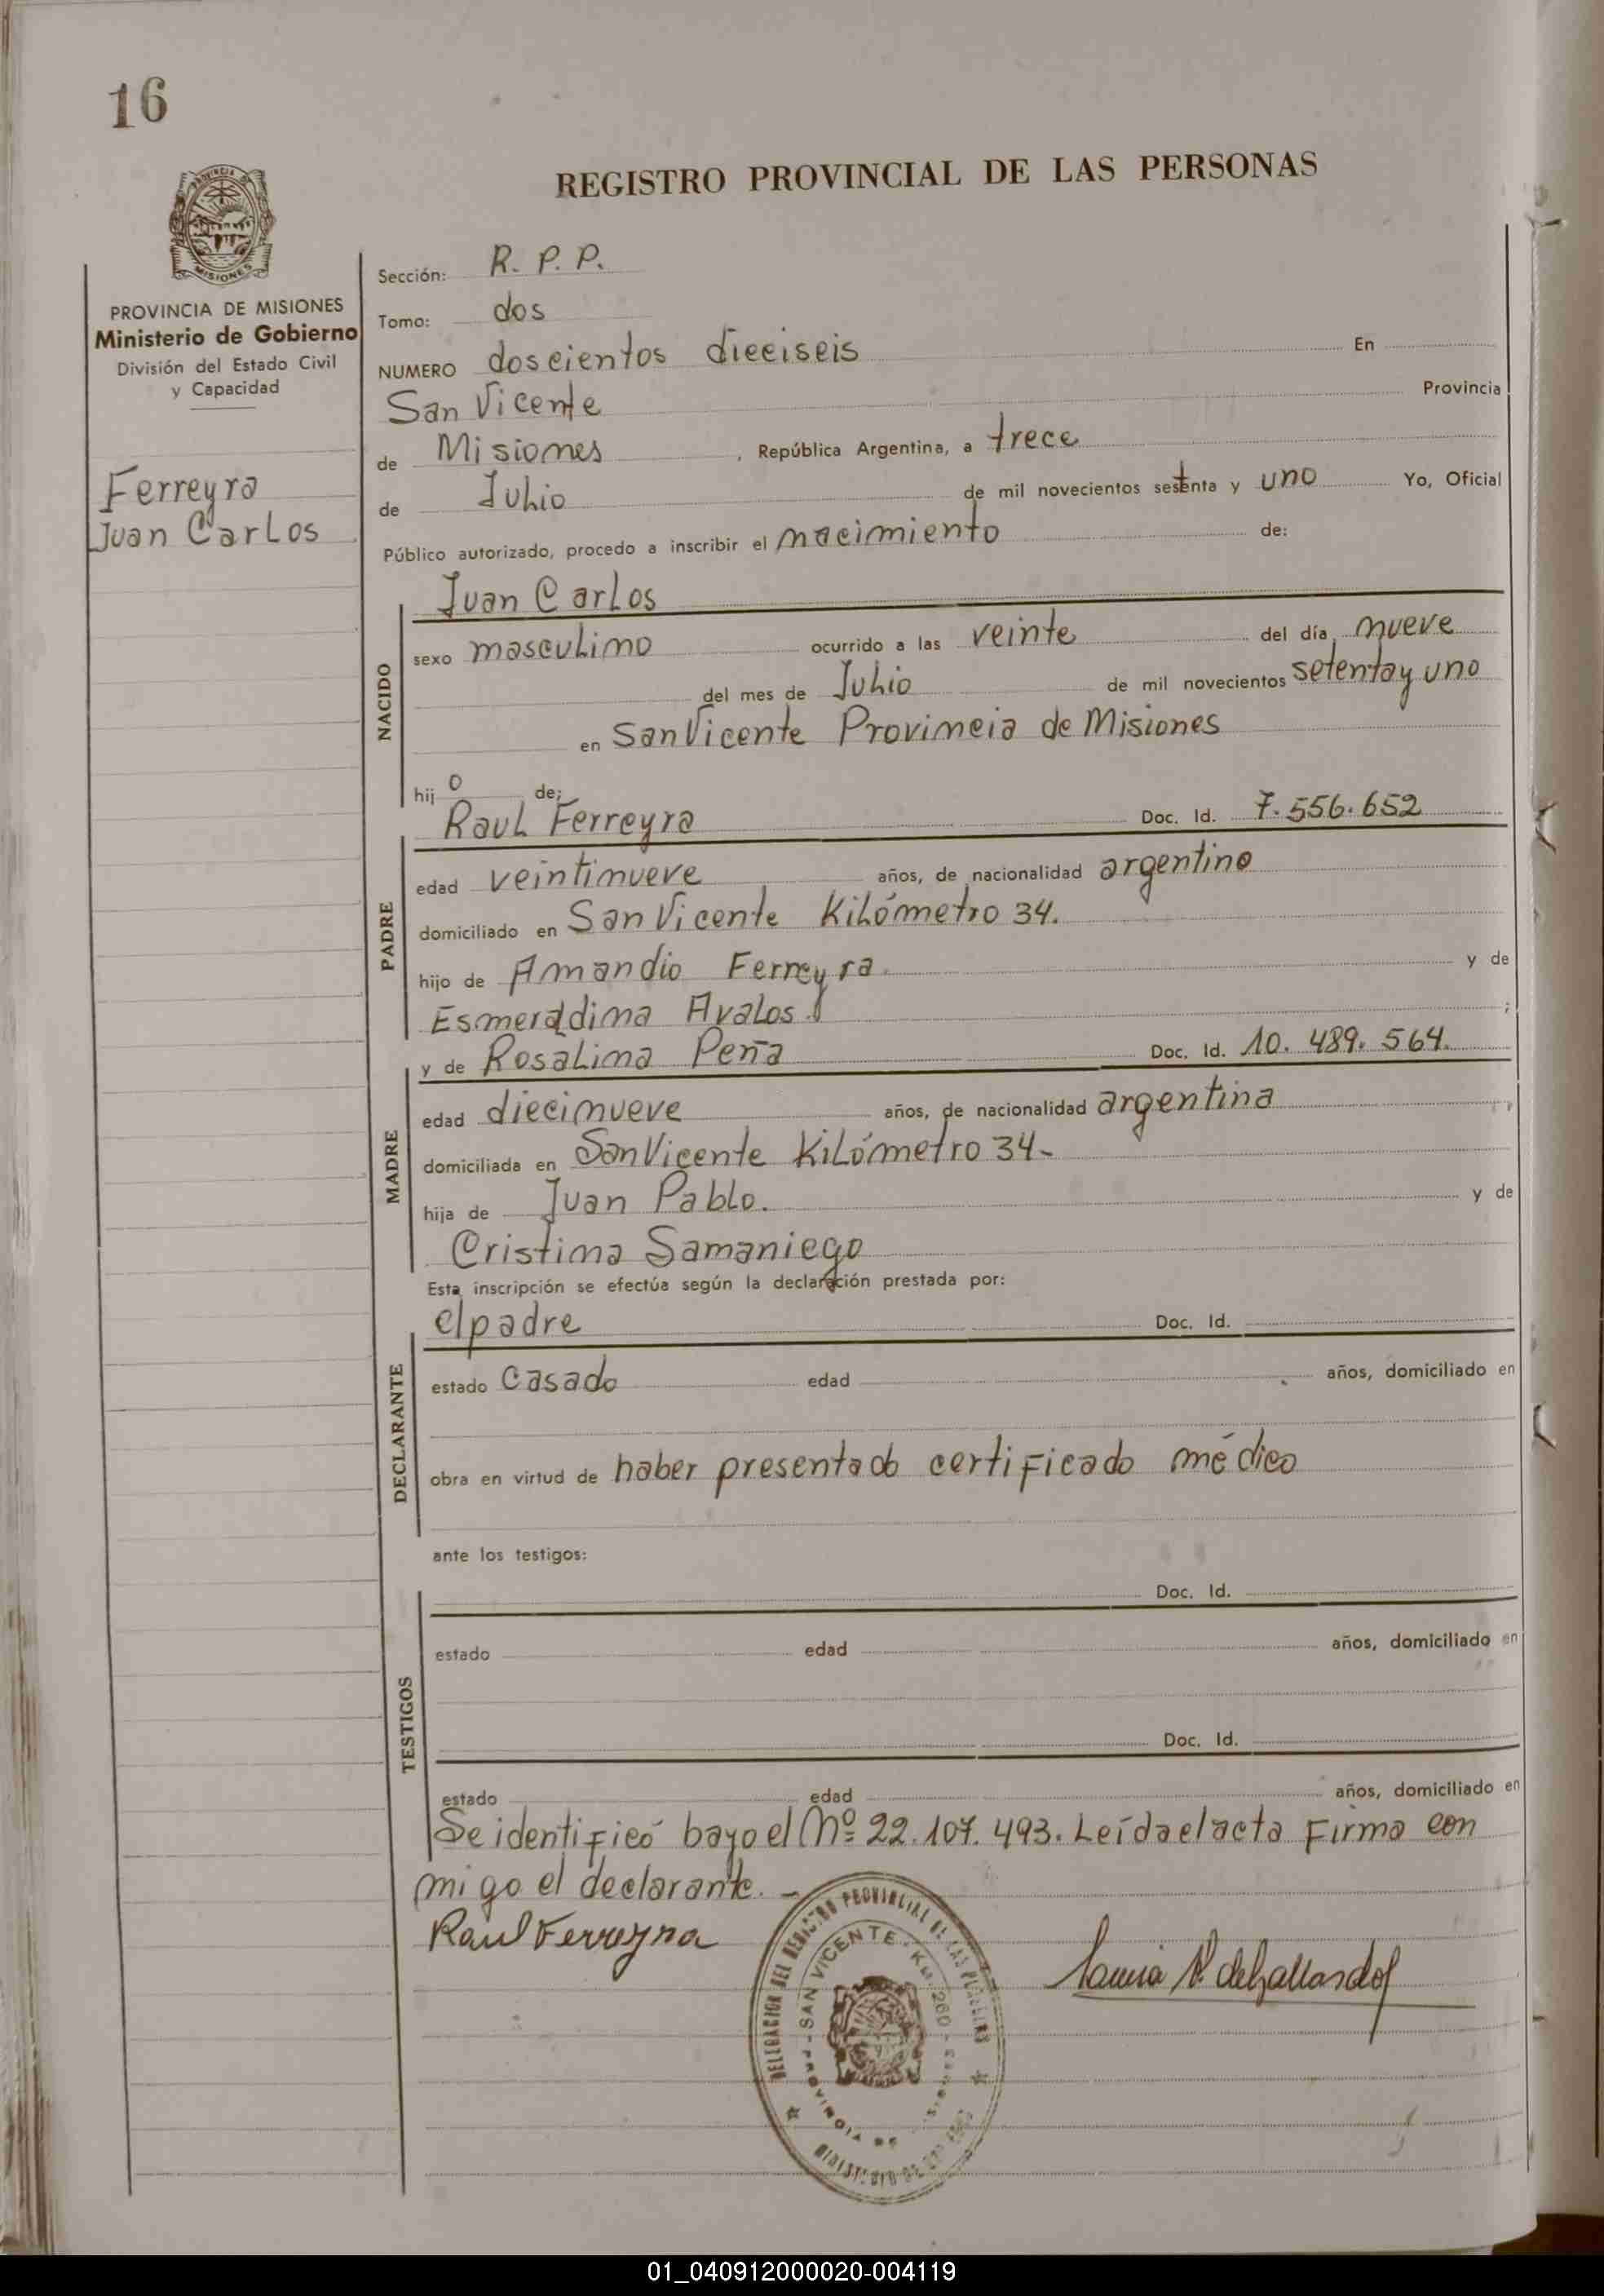 16
REGISTRO PROVINCIAL DE LAS PERSONAS
MISIONES
PROVINCIA DE MISIONES
Ministerio de Gobierno
División del Estado Civil
y Capacidad
Ferreyra
Juan Carlos
Sección: R. P. P.
Tomo: dos
NUMERO doscientos dieciseis En
San Vicente Provincia
de Misiones , República Argentina, a trece
de Julio de mil novecientos setenta y uno Yo, Oficial
Público autorizado, procedo a inscribir el nacimiento de:
NACIDO
Juan Carlos
sexo masculino ocurrido a las veinte del día nueve
del mes de Julio de mil novecientos setenta y uno
en San Vicente Provincia de Misiones
hij o de:
PADRE
Raul Ferreyra Doc. Id. 7.556.652
edad veintinueve años, de nacionalidad argentino
domiciliado en San Vicente Kilómetro 34.
hijo de Amandio Ferreyra y de
Esmeraldina Avalos ;
MADRE
y de Rosalina Peña Doc. Id. 10. 489. 564.
edad diecinueve años, de nacionalidad argentina
domiciliada en San Vicente Kilómetro 34-
hija de Juan Pablo. y de
Cristina Samaniego
Esta inscripción se efectúa según la declaración prestada por:
DECLARANTE
el padre Doc. Id.
estado Casado edad años, domiciliado en
obra en virtud de haber presentado certificado médico
ante los testigos:
TESTIGOS
Doc. Id.
estado edad años, domiciliado en
Doc. Id.
estado edad años, domiciliado en
Se identificó bajo el Nº 22.107.493. Leída el acta Firma con
migo el declarante. -
Raul Ferreyra
DELEGACION DEL REGISTRO PROVINCIAL DE LAS PERSONAS
SAN VICENTE - KM. 260 -
PROVINCIA DE
de Gallardo
01_040912000020-004119